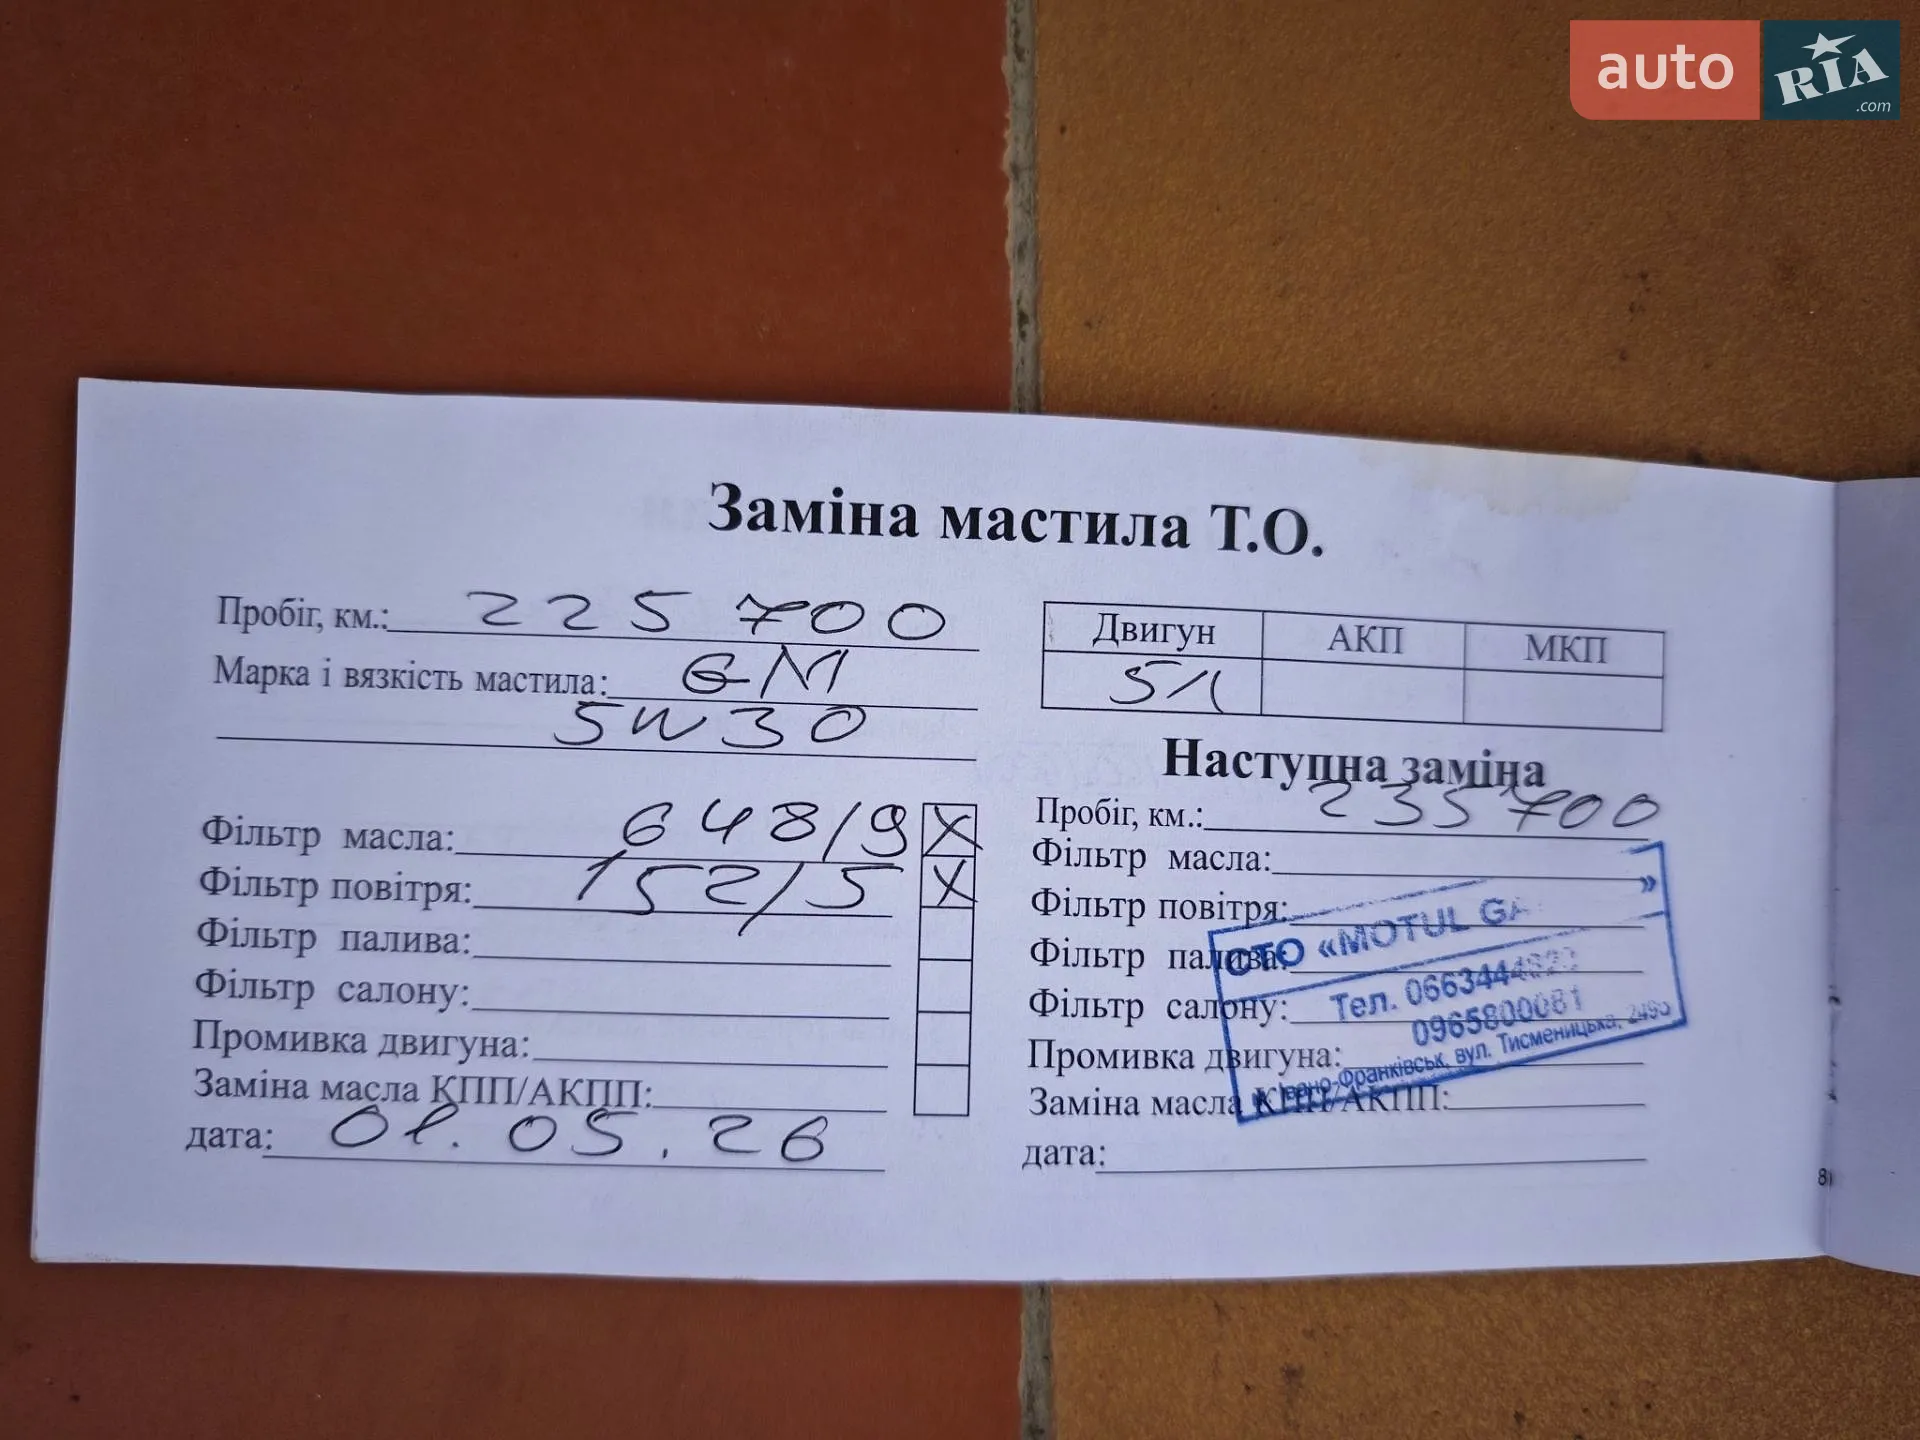 auto RIA.com
Заміна мастила Т.О.
Пробіг, км.: 225 700
Марка і вязкість мастила: GM
5W30
Двигун АКП МКП
5л
Фільтр масла: 648/9 X
Фільтр повітря: 152/5 X
Фільтр палива:
Фільтр салону:
Промивка двигуна:
Заміна масла КПП/АКПП:
дата: 01.05.26
Наступна заміна
Пробіг, км.: 235 700
Фільтр масла:
Фільтр повітря:
Фільтр палива:
Фільтр салону:
Промивка двигуна:
Заміна масла КПП/АКПП:
дата:
СТО «MOTUL »
Тел.
0965800081
м. Івано-Франківськ, вул. Тисменицька,
8